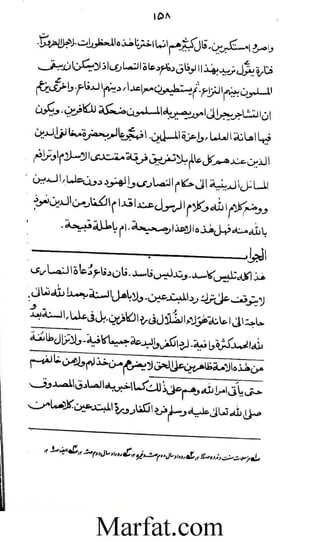 ١٥٨
واصروا مستكبرين۔ قال كبيرهم انما اخترنا هذه المحظورات۔ لاجل الضرورات۔
فتارة يقول نريد بهذا الوفاق دفاع دعاة النصارى اذ لا يمكن ان يبقى
المسلمون بينهم النزاع۔ ثم يستطيعون مع اعداء دينهم الدفاع۔ واخرى يزعم
ان التشاجر يجر الى امور يصير به المسلمون ضحكة للكافرين۔ ويكون
فيها اهانة العلماء واعزة المسلمين۔
الذين عندهم كل عالم بلا تفريق فرقة مقتدى الاسلام او ترافع
المسائل الدينية الى حكام النصارى والهنود دون علماء الدين
ووضع كلام الله وكلام الرسول عند اقدام الكفار من الدين نعوذ
بالله منه فهل هذه الاعذار صحيحة۔ ام باطلة قبيحة۔
الجواب
هذا كله تلبيس كاسد۔ وتدليس فاسد۔ فان دفاع دعاة النصارى
لا يتوقف على ترك رد المبتدعين۔ ولا باهل السنة بحمد الله تعالى
حاجة الى اعانة هؤلاء الضلال فى رد الكافرين۔ بل فى علماء السنة بعد
لله الحمد كثرة وافية۔ لرد الكفر والبدعة جميعا كافية۔ ولا تزال طائفة
من هذه الامة ظاهرين على الحق لا يضرهم من خذلهم ولا من خالفهم
حتى يأتى امر الله وهم على ذلك كما اخبر به الصادق المصدوق
صلى الله تعالى عليه وسلم فرد الكفار ورد المبتدعين۔ كلاهما من
Marfat.com